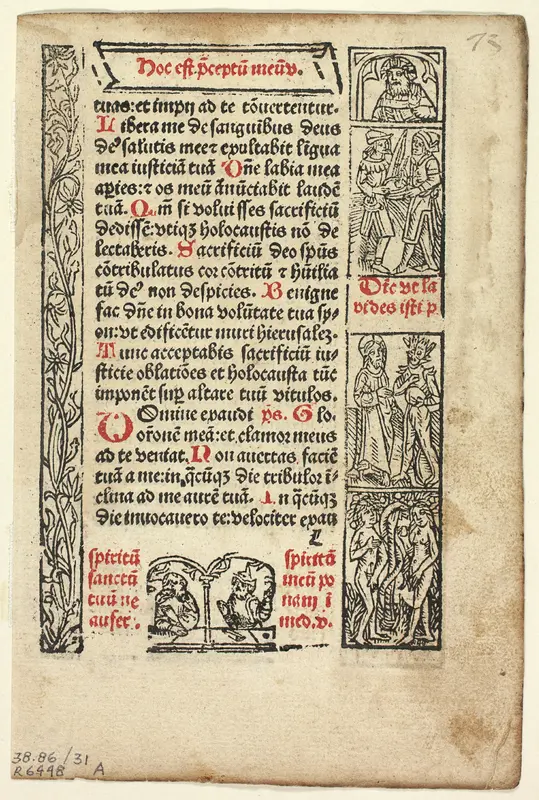 73
Hoc est p̄ceptū meūv.
tuas:et impij ad te cōuertentur.
Libera me de sanguībus deus
deꝰ salutis mee:⁊ exultabit līgua
mea iusticiā tuā Dn̄e labia mea
apies:⁊ os meū ānūciabit laudē
tuā. Qm̄ si voluisses sacrificiū
dedissē:vtiqꝫ holocaustis nō de
lectaberis. Sacrificiū deo spūs
cōtribulatus cor cōtritū ⁊ hūilia
tū deꝰ non despicies. Benigne
fac dn̄e in bona volūtate tua sy-
on:vt edificētur muri hierusalez.
Tunc acceptabis sacrificiū iu-
sticie oblatiōes et holocausta tūc
imponēt suꝑ altare tuū vitulos.
Domine exaudi ps. Glo.
orōnē meā:et clamor meus
ad te veniat. Non auertas faciē
tuā a me:in q̄cūqꝫ die tribulor ī-
clina ad me aurē tuā. In q̄cūqꝫ
die inuocauero te:velociter exau
Dic vt la
vides isti p
spiritū
sanctū
tuū ne
aufer.
spiritū
meū po
nam ī
med.v.
38.86/31
R6448 A